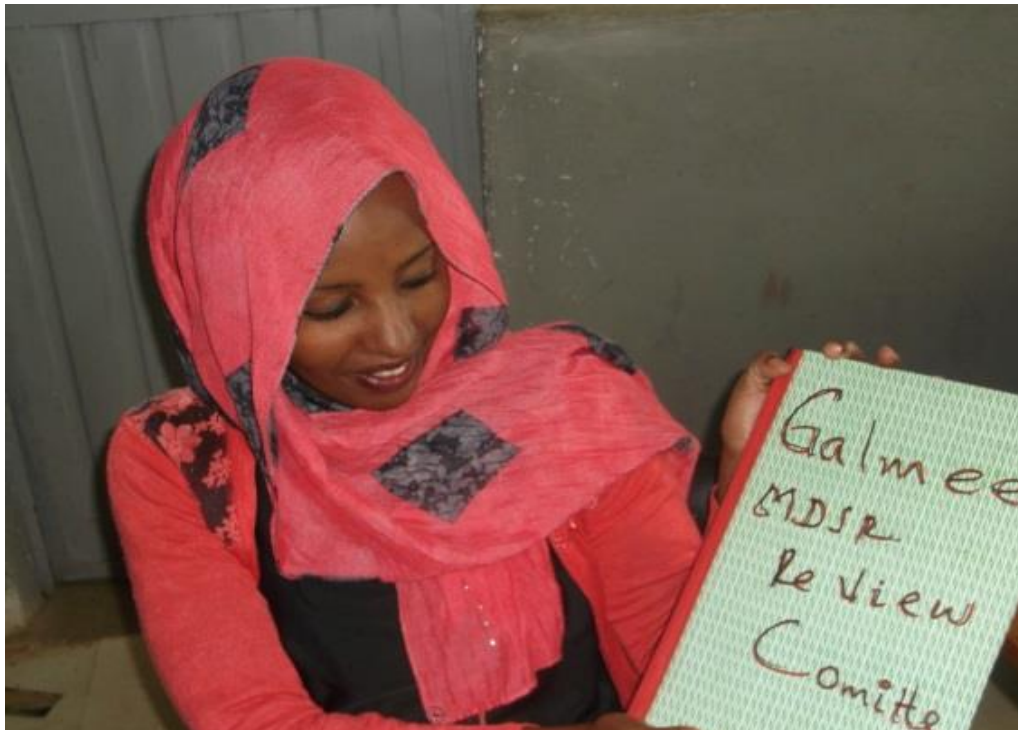 Galmee
MDSR
Review
Comitte